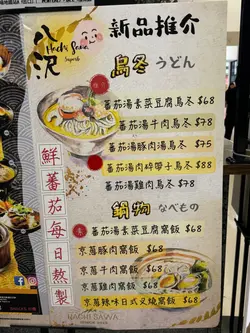 八沢
Hachi Sawa
Superb
新品推介
烏冬 うどん
蕃茄湯素菜豆腐烏冬 $68
蕃茄湯牛肉烏冬 $78
蕃茄湯豚肉湯烏冬 $75
蕃茄湯肉碎帶子烏冬 $88
蕃茄湯雞肉烏冬 $78
鍋物 なべもの
蕃茄湯素菜豆腐窩飯 $68
京蔥豚肉窩飯 $68
京蔥牛肉窩飯 $68
京蔥雞肉窩飯 $68
京蔥辣味日式叉燒窩飯 $68
鮮蕃茄每日熬製
HACHI SAWA